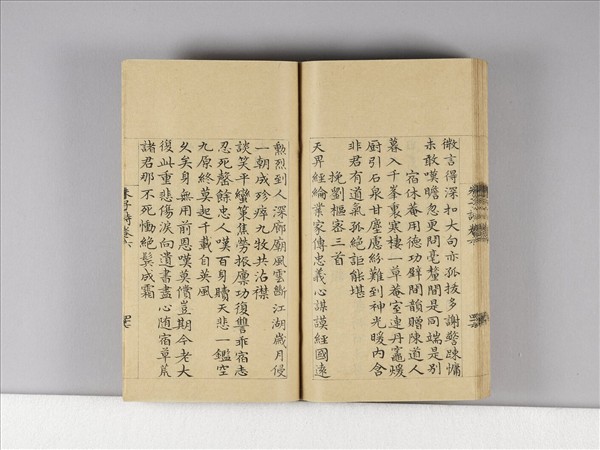 微言得深扣大句亦孤拔多謝警踈慵
未敢嘆瞻忽更問毫釐間是同端是别
宿休菴用德功壁間韻贈陳道人
暮入千峯裏寒棲一草菴室連丹竈煖
厨引石泉甘塵慮紛難到神光暖内含
非君有道氣孤絶詎能堪
挽劉樞密三首
天界經綸業家傳忠義心謀謨經國遠
勲烈到人深廊廟風雲斷江湖歲月侵
一朝成殄瘁九牧共沾襟
談笑平蠻策焦勞振廪功復讐乖宿志
忍死罄餘忠人嘆百身贖天悲一鑑空
九原終莫起千載自英風
久矣身無用前恩嘆莫償豈期今老大
復此重悲傷淚向遺書盡心随宿草荒
諸君那不死慟絶鬂成霜
朱子詩卷六